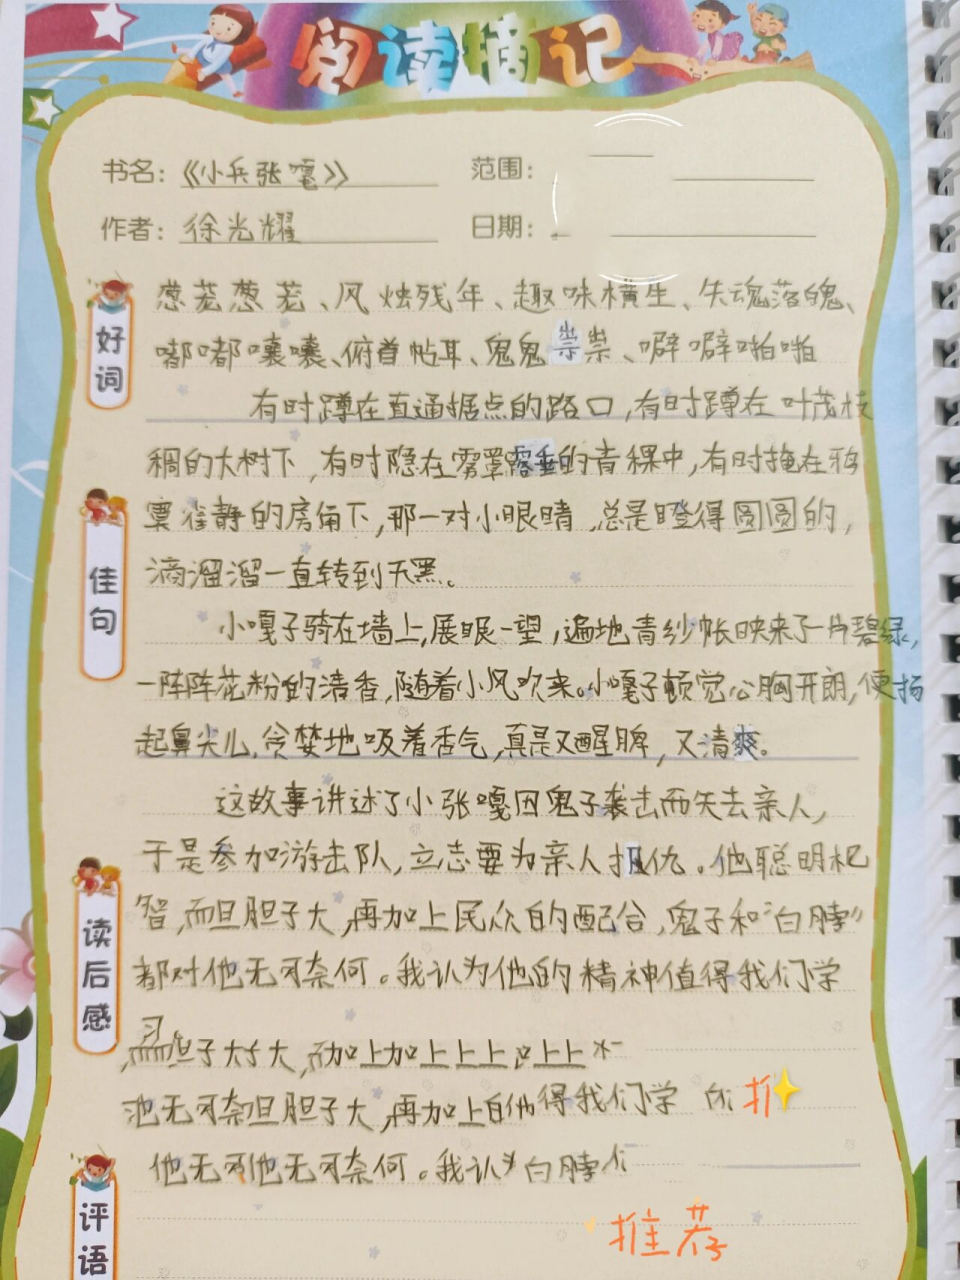 阅读摘记
书名：《小兵张嘎》 范围：
作者：徐光耀 日期：
好词
葱茏葱茏、风烛残年、趣味横生、失魂落魄、
嘟嘟囔囔、俯首帖耳、鬼鬼祟祟、噼噼啪啪
佳句
有时蹲在直通据点的路口，有时蹲在叶茂枝
稠的大树下，有时隐在雾罩露垂的青稞中，有时掩在鸦
雀静的房角下，那一对小眼睛，总是瞪得圆圆的，
滴溜溜一直转到天黑。
小嘎子骑在墙上，展眼一望，遍地青纱帐映来了一片碧绿，
一阵阵花粉的清香，随着小风吹来。小嘎子顿觉心胸开朗，便扬
起鼻尖儿，贪婪地吸着香气，真是又醒脾，又清爽。
读后感
这故事讲述了小张嘎因鬼子袭击而失去亲人，
于是参加游击队，立志要为亲人报仇。他聪明机
智，而且胆子大，再加上民众的配合，鬼子和“白脖”
都对他无可奈何。我认为他的精神值得我们学
习
胆子大子大，而加上加上上上上上
他无可奈且胆子大，再加上白他得我们学
他无可他无可奈何。我认为白脖
评语
推荐